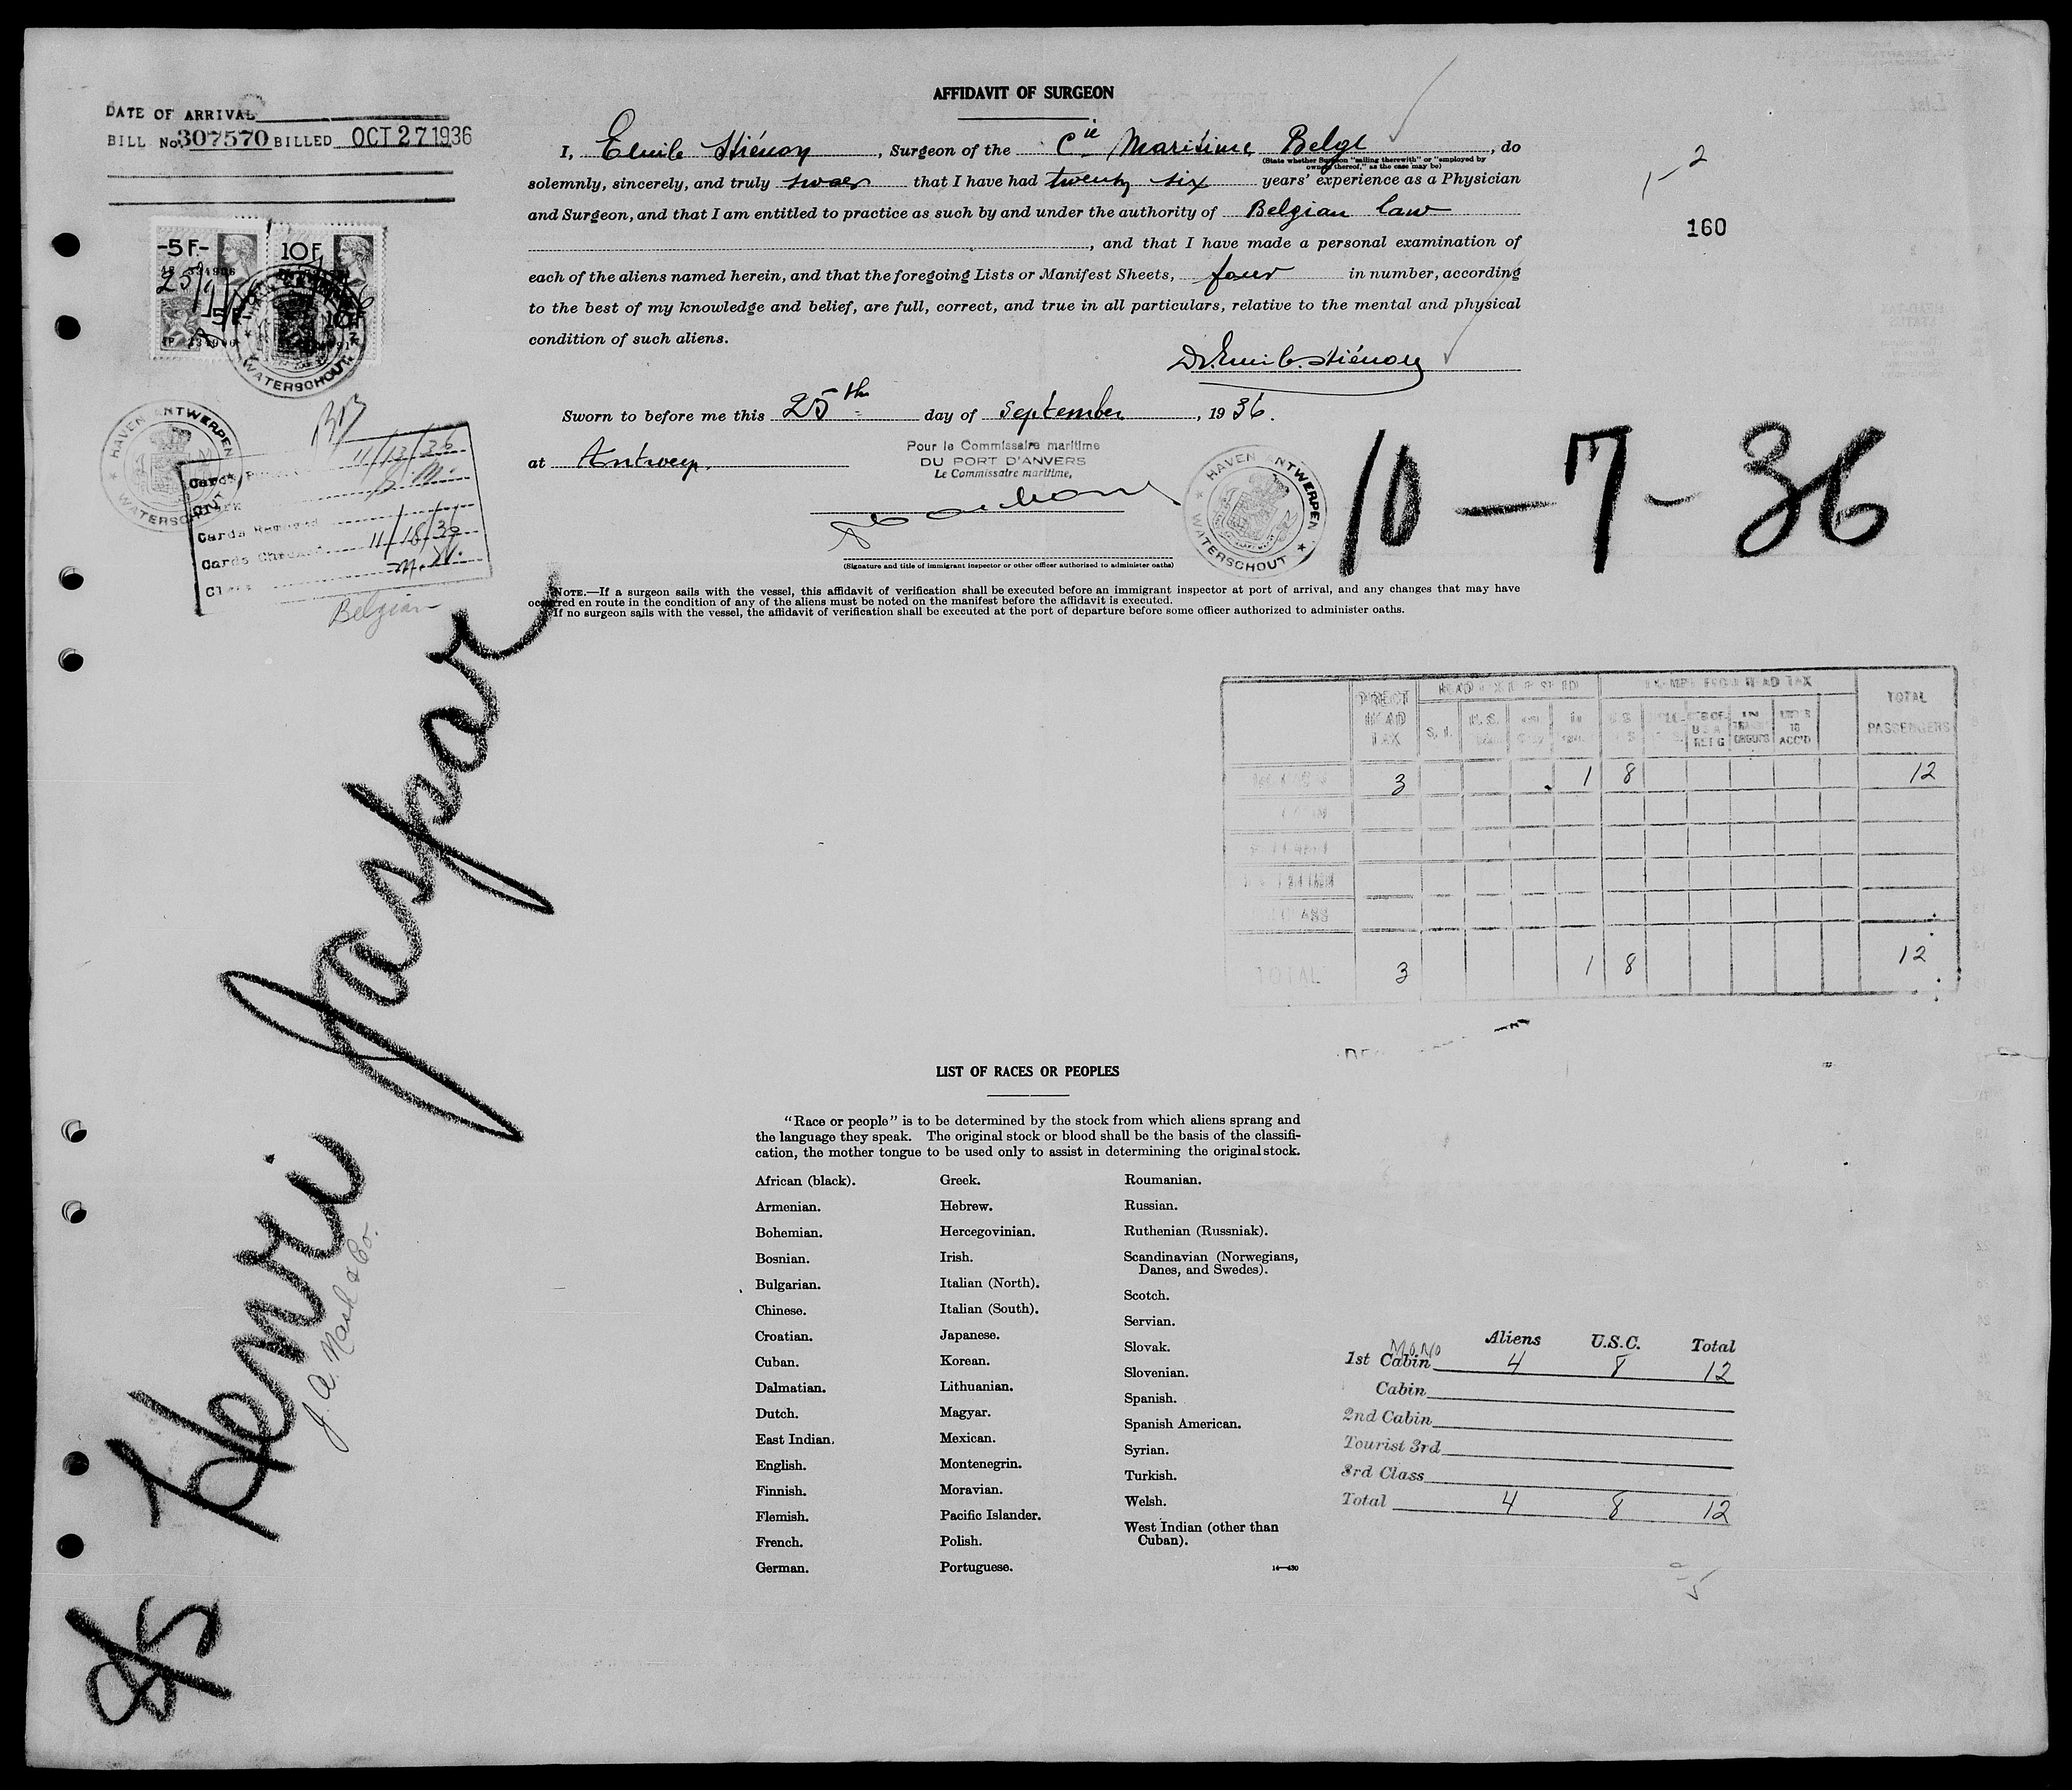 DATE OF ARRIVAL
BILL No. 307570 BILLED OCT 27 1936
-5 F.-
10 F.
-5 F-
10 F
HAVEN ANTWERPEN
WATERSCHOUT
11/13/36
Cards Removed
Cards Checked 11/18/36
Belgian
AFFIDAVIT OF SURGEON
I, Emile Stiénon, Surgeon of the Cie Maritime Belge, do
(State whether Surgeon "sailing therewith" or "employed by
owners thereof," as the case may be)
solemnly, sincerely, and truly swear that I have had twenty six years' experience as a Physician
and Surgeon, and that I am entitled to practice as such by and under the authority of Belgian law
, and that I have made a personal examination of
each of the aliens named herein, and that the foregoing Lists or Manifest Sheets, four in number, according
to the best of my knowledge and belief, are full, correct, and true in all particulars, relative to the mental and physical
condition of such aliens.
Dr. Emile Stiénon
Sworn to before me this 25th day of September, 1936.
at Antwerp.
Pour le Commissaire maritime
DU PORT D'ANVERS
Le Commissaire maritime,
HAVEN ANTWERPEN
WATERSCHOUT
(Signature and title of immigrant inspector or other officer authorized to administer oaths)
NOTE.—If a surgeon sails with the vessel, this affidavit of verification shall be executed before an immigrant inspector at port of arrival, and any changes that may have
occurred en route in the condition of any of the aliens must be noted on the manifest before the affidavit is executed.
If no surgeon sails with the vessel, the affidavit of verification shall be executed at the port of departure before some officer authorized to administer oaths.
2
160
10-7-36
SS Henri Jaspar
J. A. Nash & Co.
DIRECT HEAD TAX
EXEMPT FROM HEAD TAX
TOTAL PASSENGERS
3 1 8 12
TOTAL 3 1 8 12
LIST OF RACES OR PEOPLES
"Race or people" is to be determined by the stock from which aliens sprang and
the language they speak. The original stock or blood shall be the basis of the classifi-
cation, the mother tongue to be used only to assist in determining the original stock.
African (black).
Armenian.
Bohemian.
Bosnian.
Bulgarian.
Chinese.
Croatian.
Cuban.
Dalmatian.
Dutch.
East Indian.
English.
Finnish.
Flemish.
French.
German.
Greek.
Hebrew.
Hercegovinian.
Irish.
Italian (North).
Italian (South).
Japanese.
Korean.
Lithuanian.
Magyar.
Mexican.
Montenegrin.
Moravian.
Pacific Islander.
Polish.
Portuguese.
Roumanian.
Russian.
Ruthenian (Russniak).
Scandinavian (Norwegians,
Danes, and Swedes).
Scotch.
Servian.
Slovak.
Slovenian.
Spanish.
Spanish American.
Syrian.
Turkish.
Welsh.
West Indian (other than
Cuban).
14—430
Aliens U.S.C. Total
1st Cabin 4 8 12
Cabin
2nd Cabin
Tourist 3rd
3rd Class
Total 4 8 12